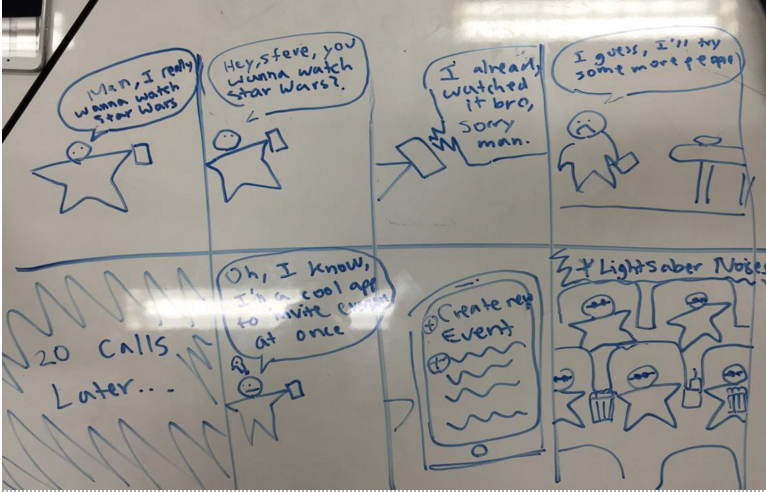 Man, I really
wanna watch
Star Wars
Hey, steve, you
wanna watch
Star Wars?
I already
watched
it bro,
sorry
man.
I guess, I'll try
some more people
20 Calls
Later...
Oh, I know,
a cool app
to invite
at once
Create new
Event
* Lightsaber Noises